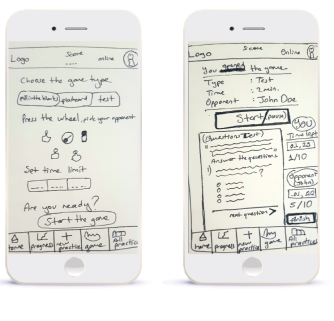 Logo Score online R
Choose the game type
fill in the blank flashcard test
Press the wheel, pick your opponent
Set time limit
Are you ready?
Start the game
home progress new practice game All practices
Logo Score Online R
you opened the game
Type : Test
Time : 2 min.
Opponent : John Doe
Start / pause
YOU
(Questions Test)
Time left
Answer the questions
1/10
1) ?
Opponent (John)
5/10
next question >
finish
home progress new practice game All practices